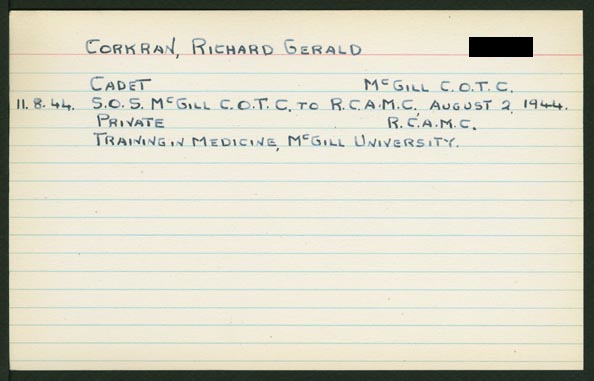 CORKRAN, RICHARD GERALD
CADET McGILL C.O.T.C.
11.8.44. S.O.S. McGILL C.O.T.C. TO R.C.A.M.C. AUGUST 2, 1944.
PRIVATE R.C.A.M.C.
TRAINING IN MEDICINE, McGILL UNIVERSITY.